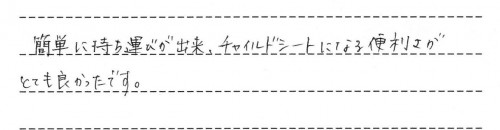 簡単に持ち運びが出来、チャイルドシートになる便利さが
とても良かったです。